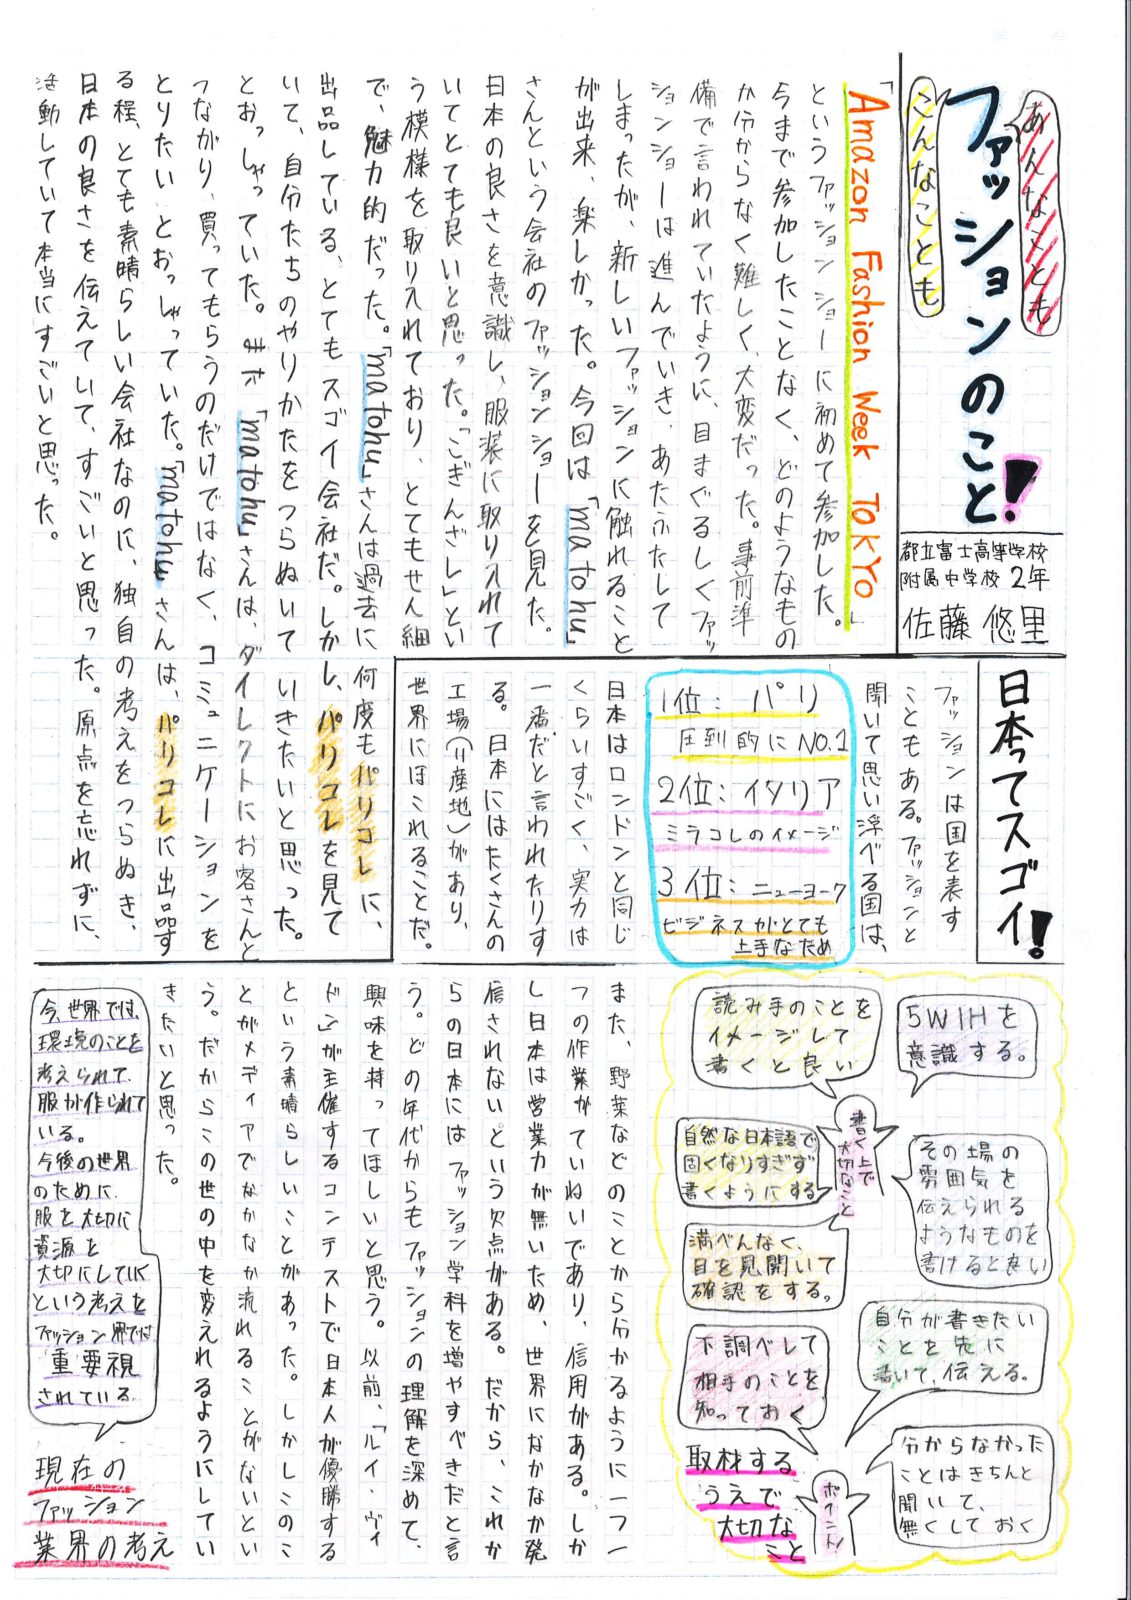 あんなことも
ファッションのこと!
こんなことも
都立富士高等学校
附属中学校 2年
佐藤 悠里
「Amazon Fashion Week TOKYO」
というファッションショーに初めて参加した。
今まで参加したことなく、どのようなもの
か分からなく難しく、大変だった。事前準
備で言われていたように、目まぐるしくファッ
ションショーは進んでいき、あたふたして
しまったが、新しいファッションに触れること
が出来、楽しかった。今回は「matohu」
さんという会社のファッションショーを見た。
日本の良さを意識し、服装に取り入れて
いてとても良いと思った。「こぎんざし」とい
う模様を取り入れており、とてもせん細
で、魅力的だった。「matohu」さんは過去に何度もパリコレに、
出品している、とてもスゴイ会社だ。しかし、パリコレを見て
いて、自分たちのやりかたをつらぬいていきたいと思った。
とおっしゃっていた。まだ「matohu」さんは、ダイレクトにお客さんと
つながり、買ってもらうのだけではなく、コミュニケーションを
とりたいとおっしゃっていた。「matohu」さんは、パリコレに出品す
る程、とても素晴らしい会社なのに、独自の考えをつらぬき、
日本の良さを伝えていて、すごいと思った。原点を忘れずに、
活動していて本当にすごいと思った。
日本ってスゴイ!
ファッションは国を表す
こともある。ファッションと
聞いて思い浮べる国は、
1位:パリ
圧到的にNO.1
2位:イタリア
ミラコレのイメージ
3位:ニューヨーク
ビジネスがとても
上手なため
日本はロンドンと同じ
くらいすごく、実力は
一番だと言われたりす
る。日本にはたくさんの
工場(=産地)があり、
世界にほこれることだ。
また、野菜などのことから分かるように一つ一
つの作業がていねいであり、信用がある。しか
し日本は営業力が無いため、世界になかなか発
信されないという欠点がある。だから、これか
らの日本にはファッション学科を増やすべきだと言
う。どの年代からもファッションの理解を深めて、
興味を持ってほしいと思う。以前、「ルイ・ヴィ
ドン」が主催するコンテストで日本人が優勝する
という素晴らしいことがあった。しかしこのこ
とがメディアでなかなか流れることがないとい
う。だからこの世の中を変えれるようにしてい
きたいと思った。
5W1Hを
意識する。
読み手のことを
イメージして
書くと良い
書く上で
大切なこと
自然な日本語で
固くなりすぎず
書くようにする
その場の
雰囲気を
伝えられる
ようなものを
書けると良い
満べんなく、
目を見開いて
確認をする。
自分が書きたい
ことを先に
書いて、伝える。
下調べして
相手のことを
知っておく
分からなかった
ことはきちんと
聞いて、
無くしておく
ポイント!
取材する
うえで
大切な
こと
今、世界では、
環境のことを
考えられて、
服が作られて
いる。
今後の世界
のために、
服を大切に
資源を
大切にしていく
という考えを
ファッション界では
重要視
されている。
現在の
ファッション
業界の考え